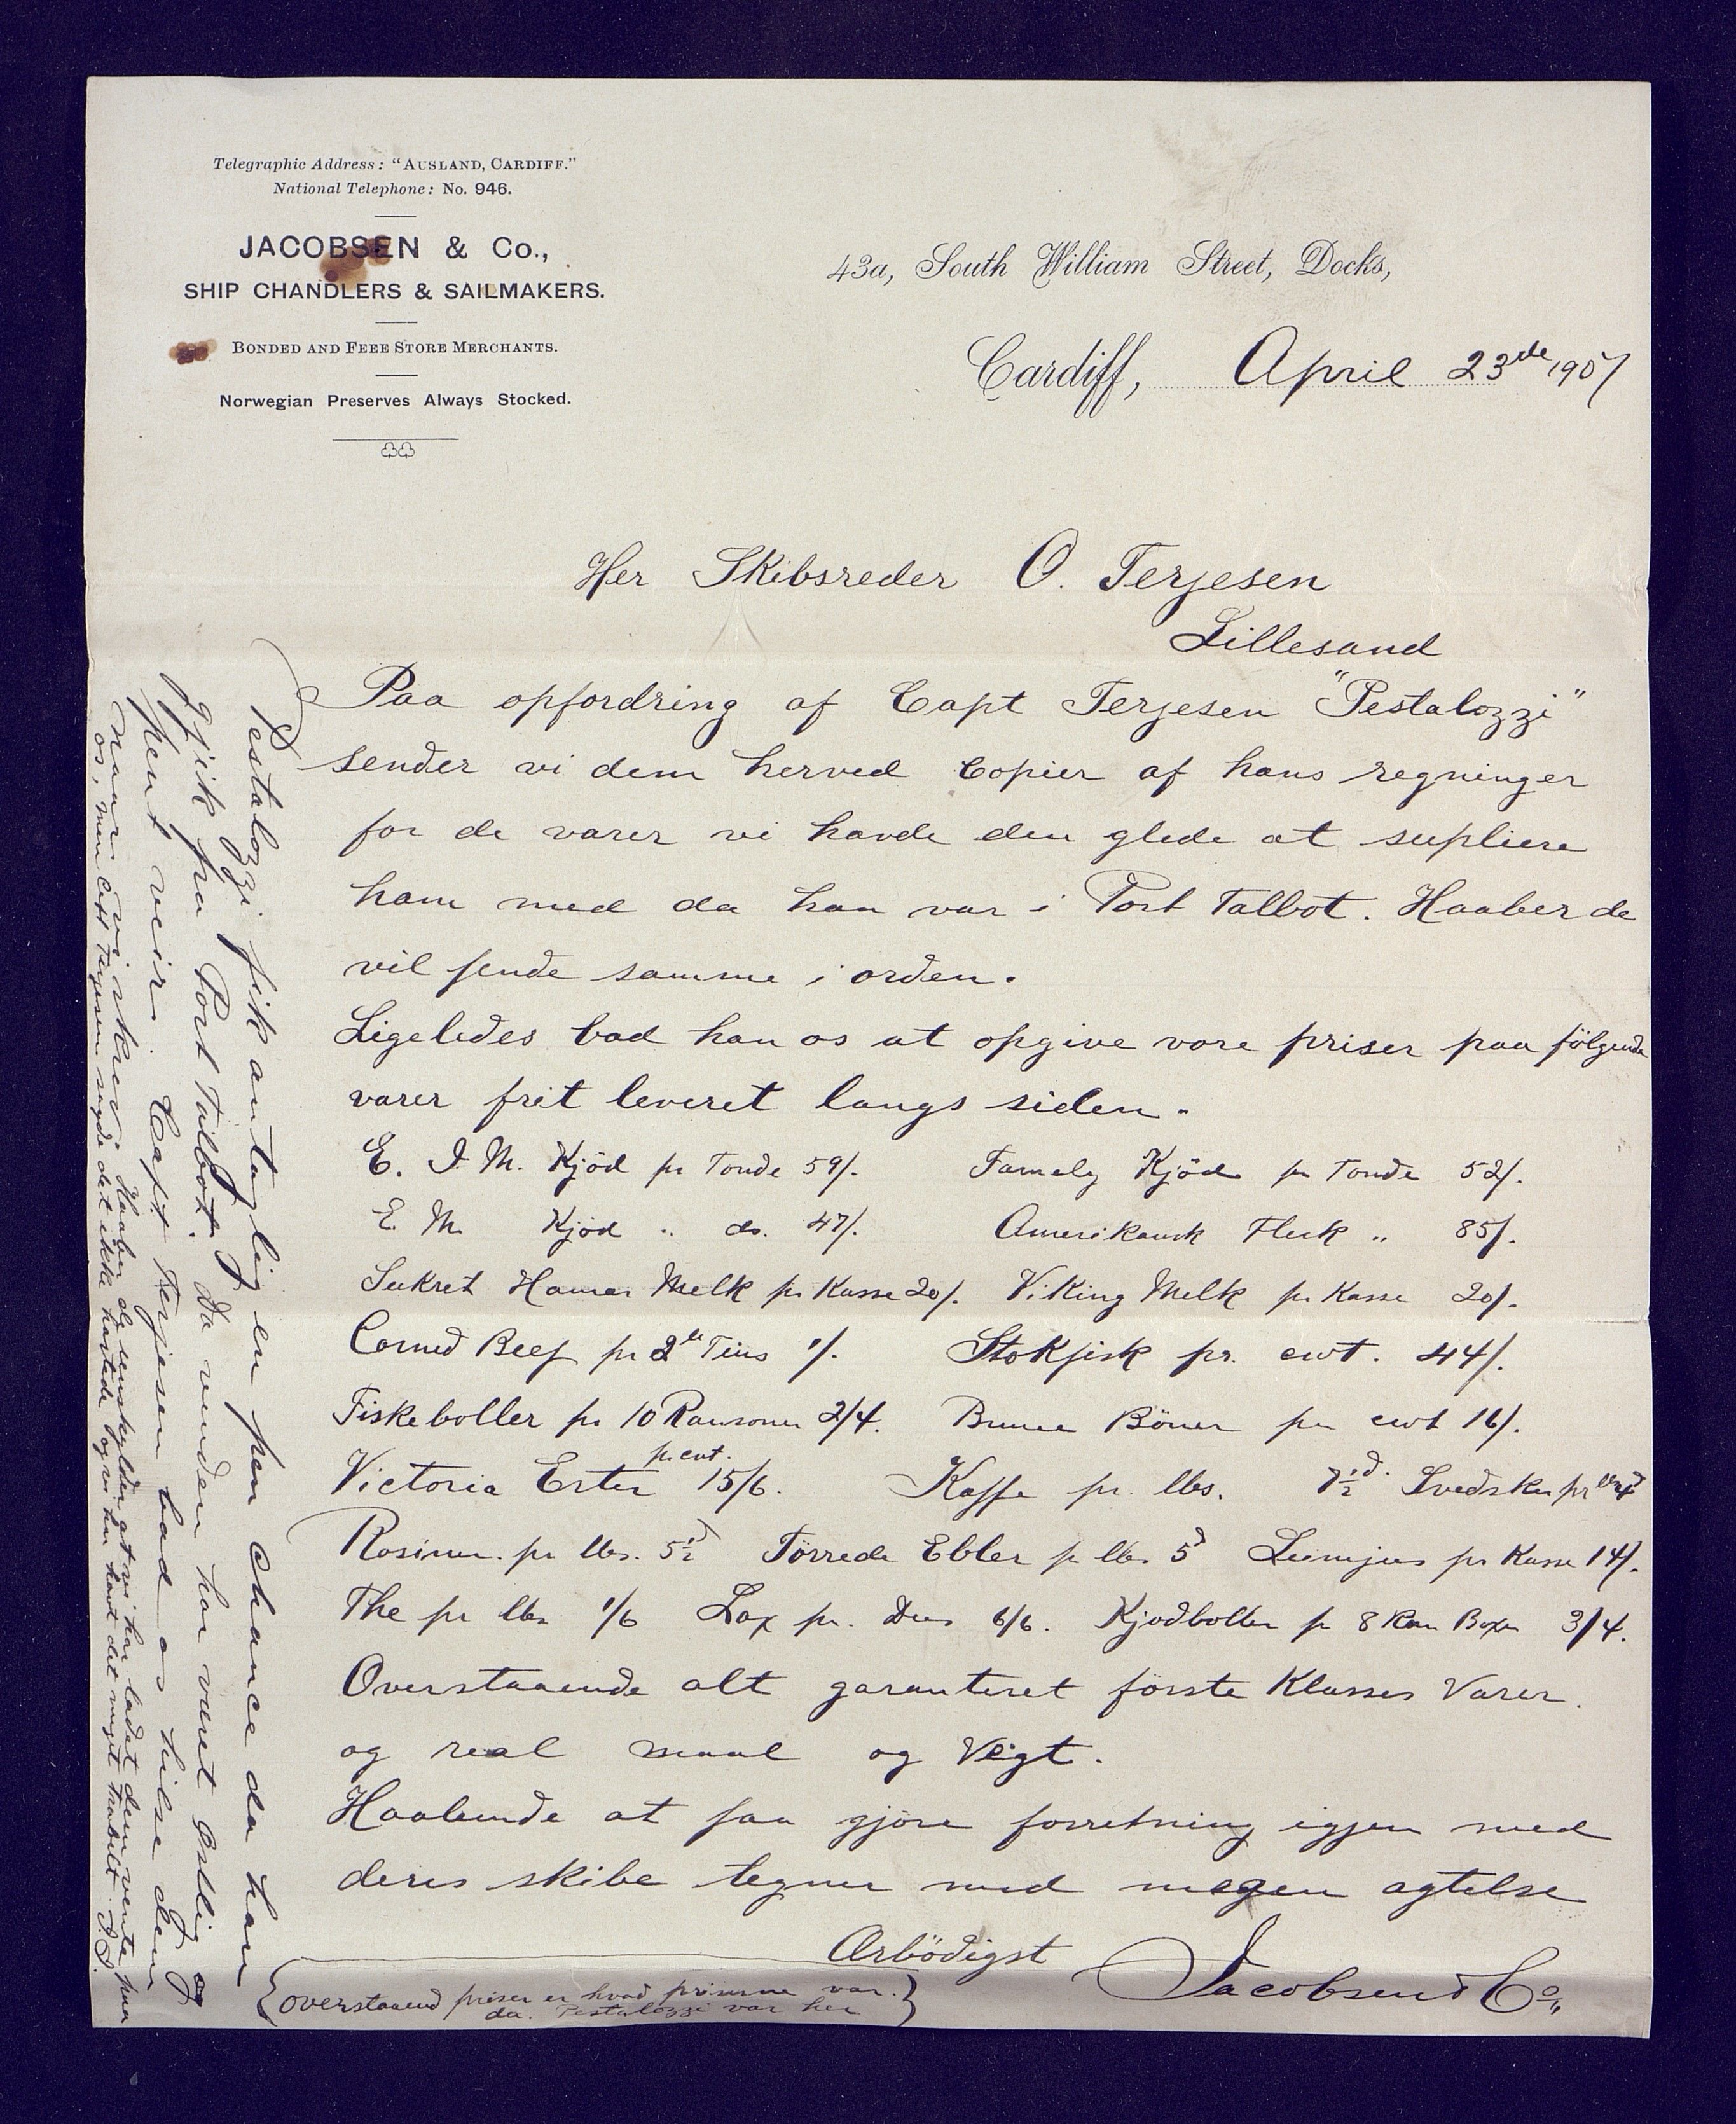 Telegraphic Address: "AUSLAND, CARDIFF."
National Telephone: No. 946.
JACOBSEN & Co.,
SHIP CHANDLERS & SAILMAKERS.
BONDED AND FEEE STORE MERCHANTS.
Norwegian Preserves Always Stocked.
43a, South William Street, Docks,
Cardiff, April 23de 1907
Her Skibsreder O. Terjesen
Lillesand
Paa opfordring af Capt Terjesen "Pestalozzi"
sender vi dem herved Copier af hans regninger
for de varer vi havde den glede at supliere
ham med da han var i Port Talbot. Haaber de
vil finde samme i orden.
Ligeledes bad han os at opgive vore priser paa fölgende
varer frit leveret langs siden.
E. I. M. Kjöd pr Tonde 59/. Famely Kjöd pr Tonde 52/.
E. M. Kjöd " do. 47/. Amerikansk Flesk " 85/.
Sukret Hamar Melk pr Kasse 20/. Viking Melk pr Kasse 20/.
Corned Beef pr 2lb Tins 1/. Stokfisk pr. cwt. 44/.
Fiskeboller pr 10 Ransoner 2/4. Brune Böner pr cwt 16/.
Victoria Erter pr cwt. 15/6. Kaffe pr. lbs. 7½d. Svedsker pr lbs
Rosiner. pr lbs. 5½d Törrede Ebler pr lbs. 5d Leimjus pr Kasse 14/.
The pr lbs 1/6 Lax pr. Dus 6/6. Kjodboller pr 8 Ran Boxer 3/4.
Overstaaende alt garanteret förste Klasses Varer.
og real maal og Vegt.
Haabende at faa gjöre forretning igjen med
deres skibe tegner med megen agtelse
Ærbödigst Jacobsen & Co,,
{overstaaend priser er hvad priserne var.}
da. Pestalozzi var her
Pestalozzi fik antaglig en pen Chance da han
gjik fra Port Talbot. Da vinden har veret Östlig og
pent veir. Capt Terjesen bad os hilse dem
naar vi skrev. Haaber de undskylder at vi har ladet dem vente paa
os, men Capt Terjesen sagde det ikke hastede og vi har havt det meget travelt.